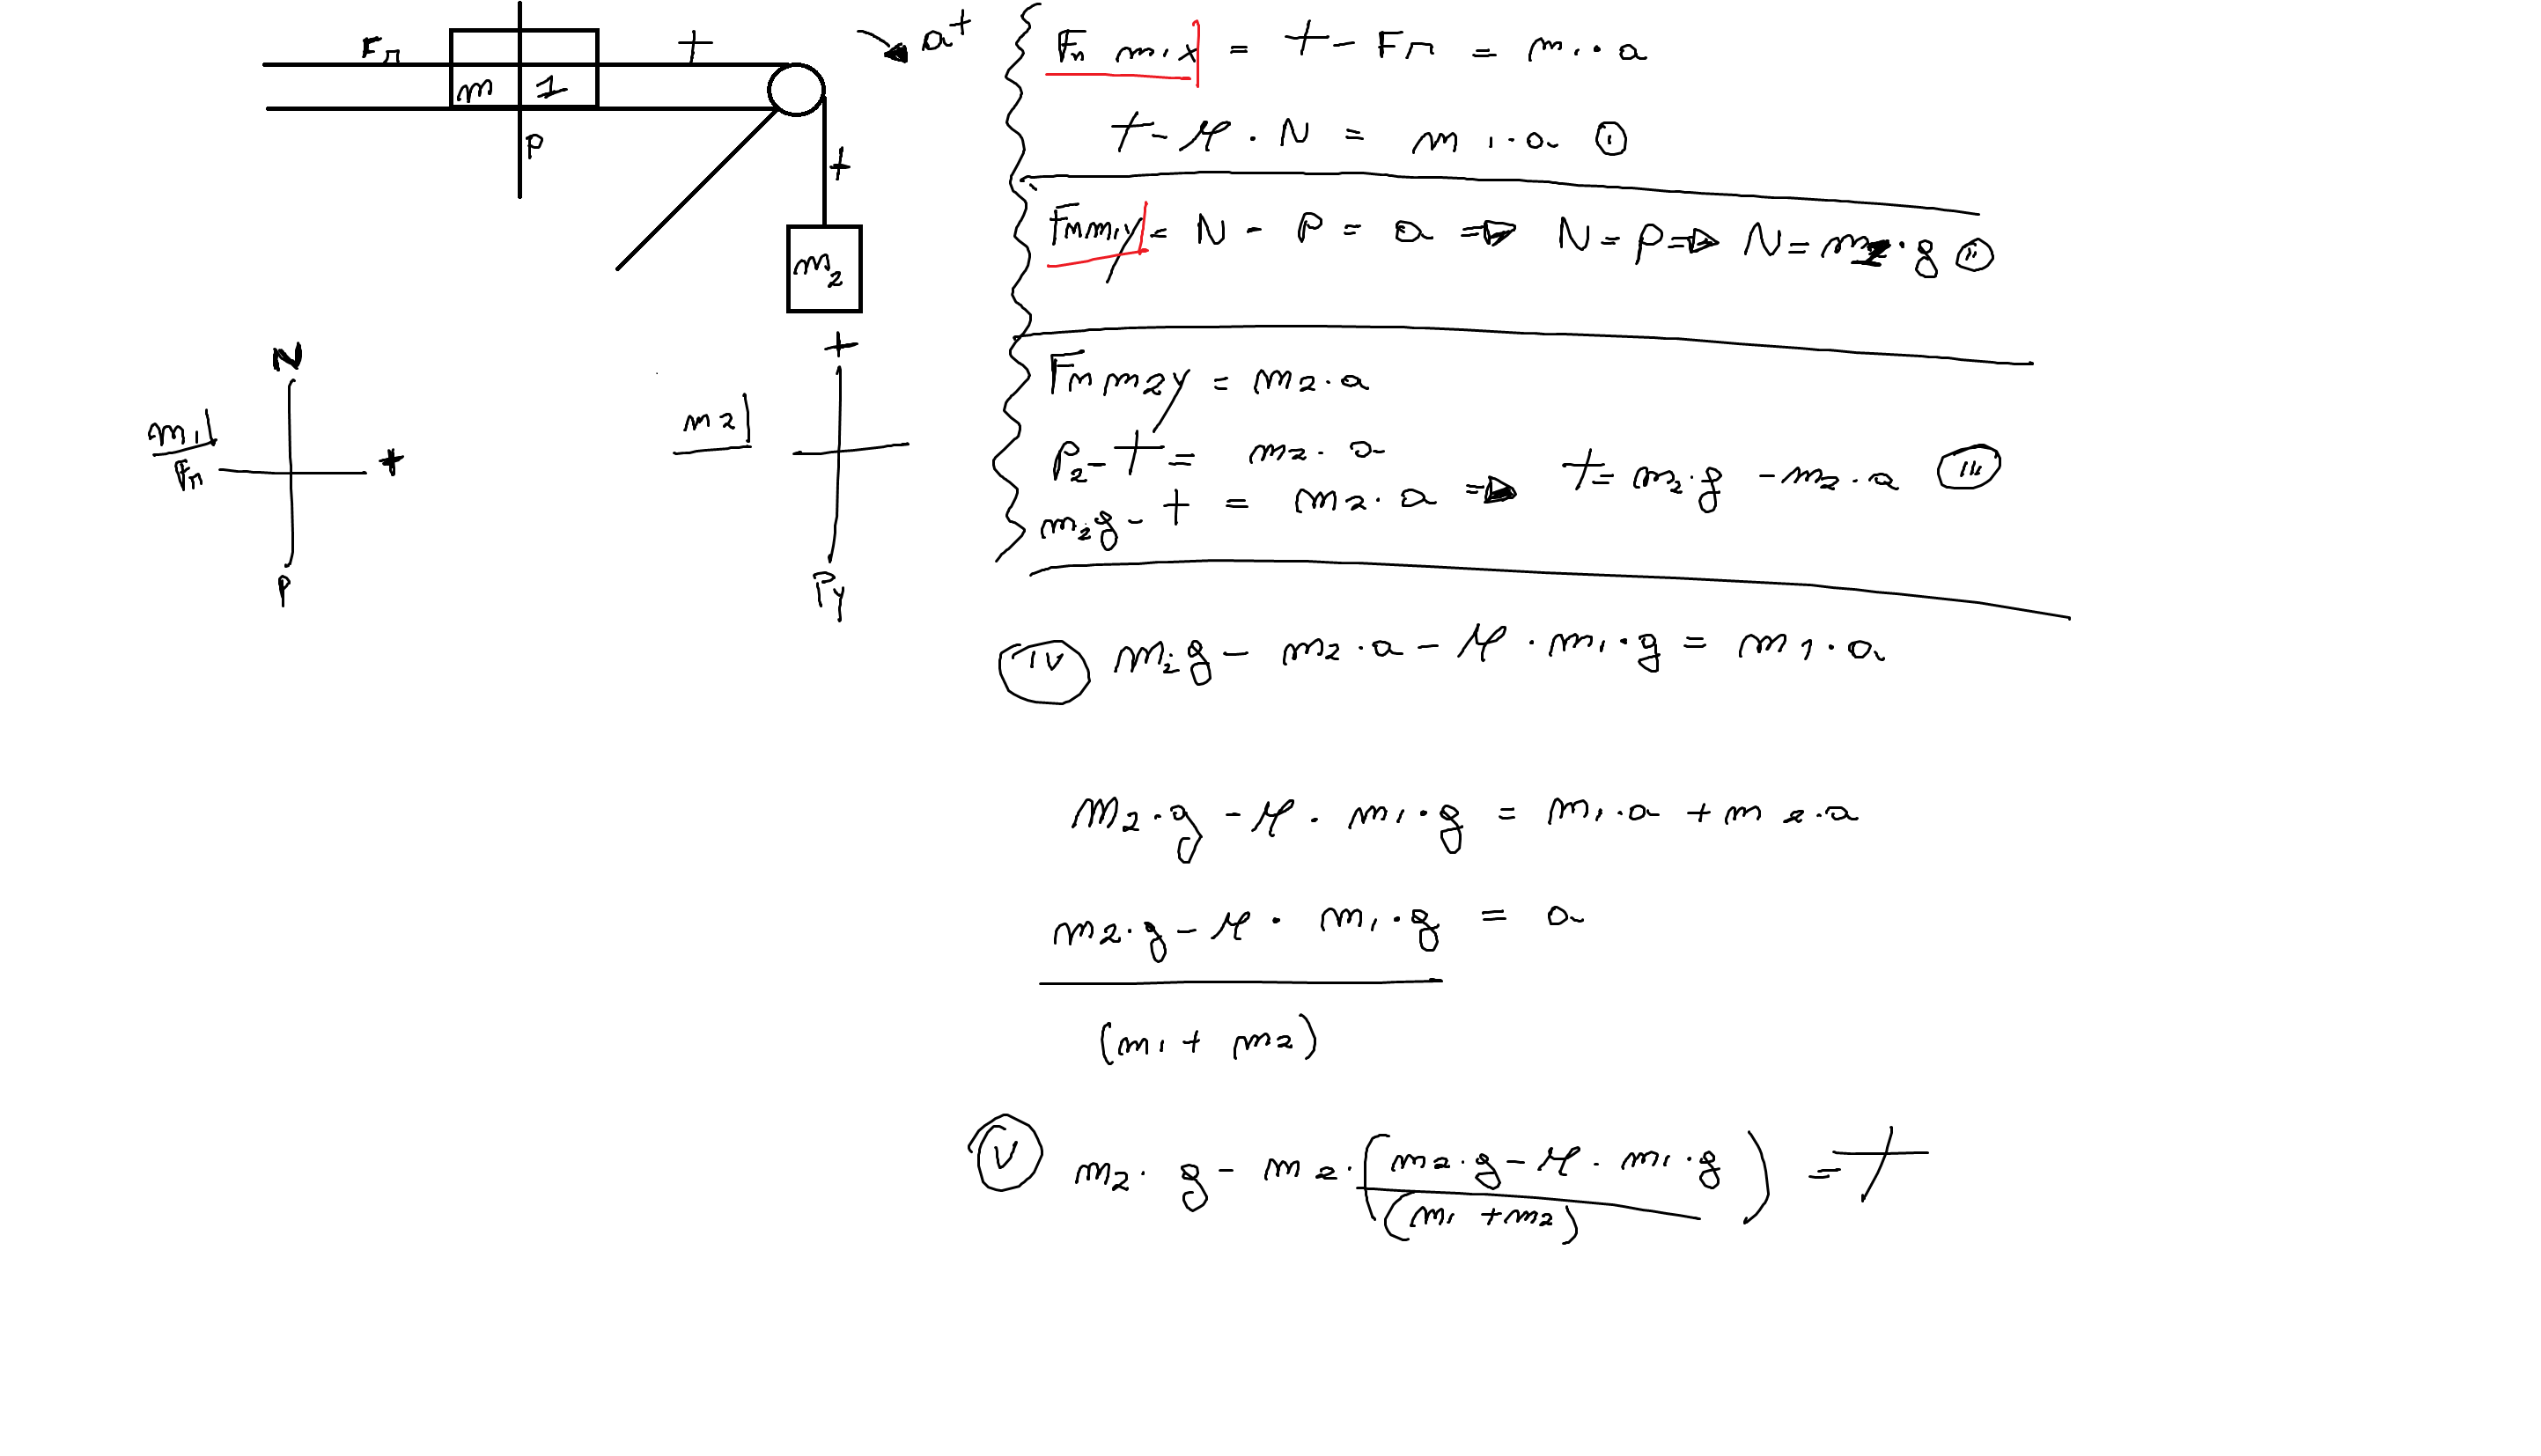 Fr
T
a+
m 1
P
T
m2
N
m1
Fr
T
P
m2
T
Py
Fn m1x = T - Fr = m1 . a
T - μ . N = m1 . a I
Fn m1y = N - P = 0 => N = P => N = m1 . g II
Fn m2y = m2 . a
P2 - T = m2 . a
m2g - T = m2 . a => T = m2 . g - m2 . a III
IV m2g - m2 . a - μ . m1 . g = m1 . a
m2 . g - μ . m1 . g = m1 . a + m2 . a
m2 . g - μ . m1 . g = a
(m1 + m2)
V m2 . g - m2 . (m2 . g - μ . m1 . g) = T
(m1 + m2)